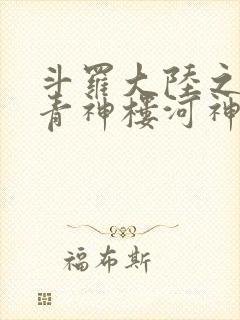 斗羅大陸之
青神樓河神
福布斯